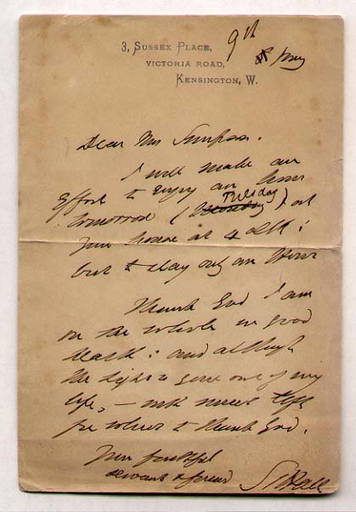 3, SUSSEX PLACE,
VICTORIA ROAD,
KENSINGTON, W.
9th
May
Dear Mr Simpson.
I will make an
Effort to enjoy an hour
tomorrow (Tuesday) at
your house at 4 oclk:
but to stay only an hour
Thank God I am
on the whole in good
health: and although
the light is gone out of my
life, — much
for which to thank God.
Your faithful
servant & friend
S C Hall